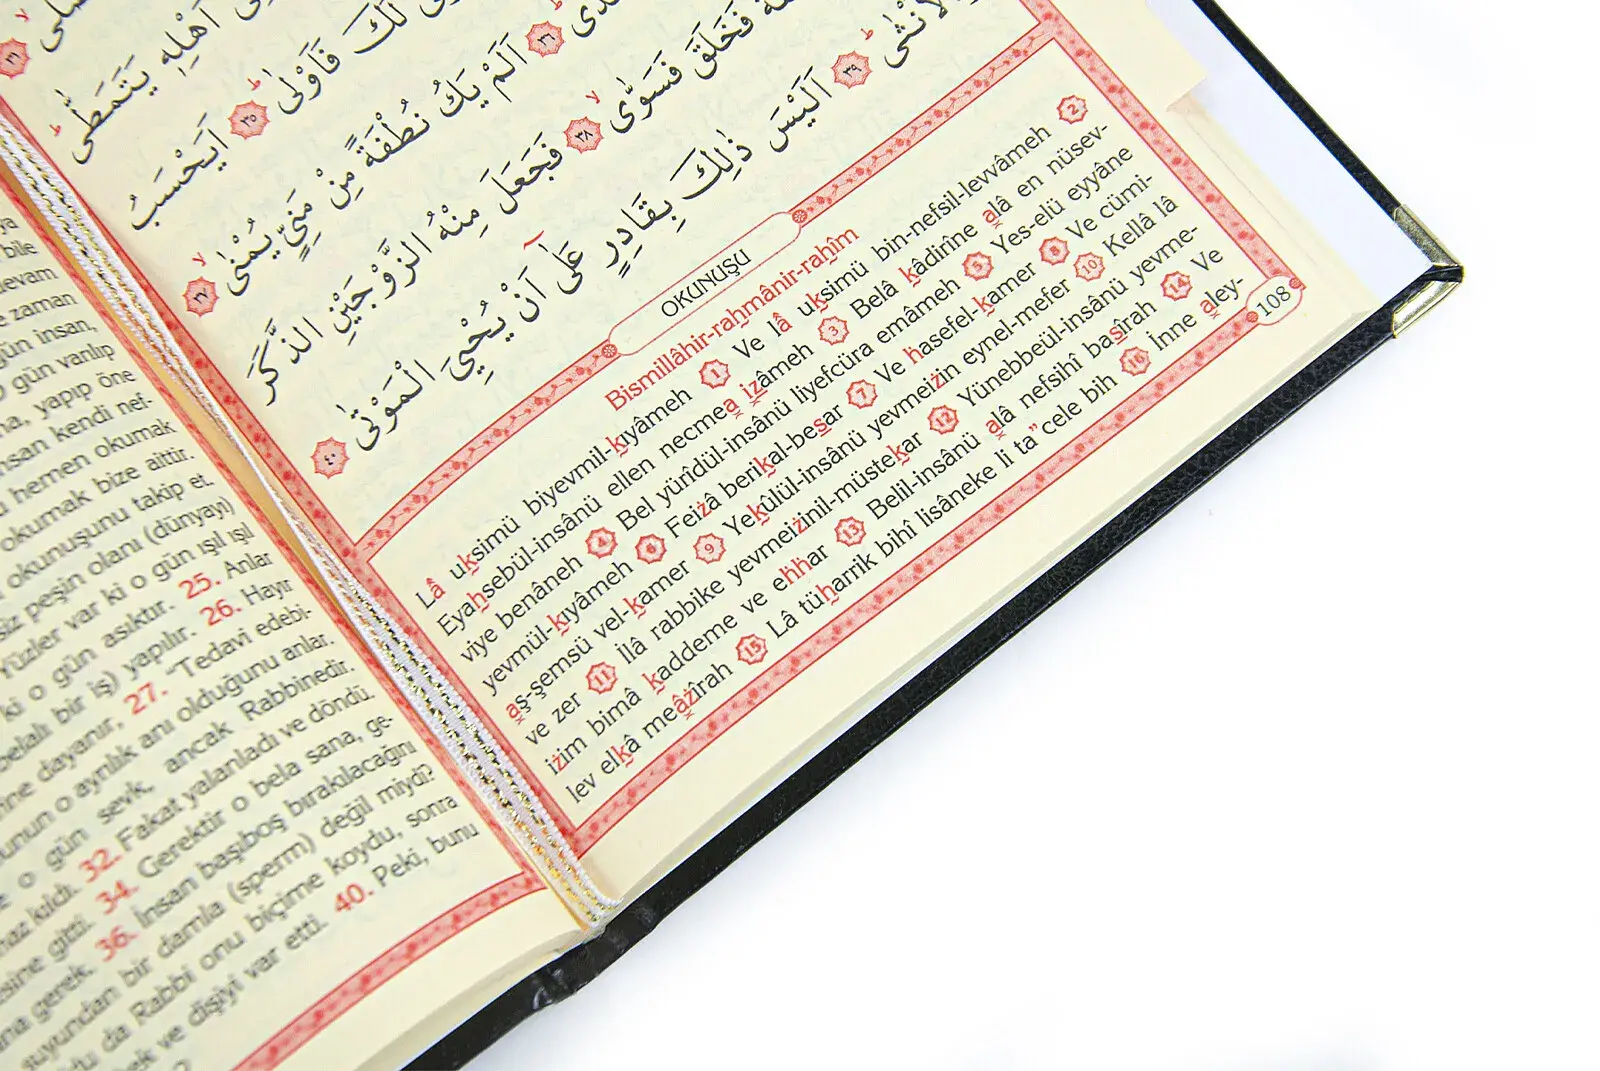 ya
bile
devam
e zaman
gün insan,
O gün varılıp
na, yapıp öne
insan kendi nef-
hemen okumak
okumak bize aittir.
okunuşunu takip et.
siz peşin olanı (dünyayı)
Yüzler var ki o gün ışıl ışıl
ki o gün asıktır. 25. Anlar
belalı bir iş) yapılır. 26. Hayır
dayanır, 27. “Tedavi edebi-
unun o ayrılık anı olduğunu anlar.
o gün sevk, ancak Rabbinedir.
kıldı. 32. Fakat yalanladı ve döndü.
gitti. 34. Gerektir o bela sana, ge-
gerek. 36. İnsan başıboş bırakılacağını
suyundan bir damla (sperm) değil miydi?
da Rabbi onu biçime koydu, sonra
ve dişiyi var etti. 40. Peki, bunu
اَهْلِهٖ يَتَمَطّٰى
لَكَ فَاَوْلٰى ٣٥ اَيَحْسَبُ
٣٦ اَلَمْ يَكُ نُطْفَةً مِنْ مَنِيٍّ يُمْنٰى ٣٧
فَخَلَقَ فَسَوّٰى ٣٨ فَجَعَلَ مِنْهُ الزَّوْجَيْنِ الذَّكَرَ
وَالْاُنْثٰى ٣٩ اَلَيْسَ ذٰلِكَ بِقَادِرٍ عَلٰٓى اَنْ يُحْيِيَ الْمَوْتٰى ٤٠
OKUNUŞU
Bismillâhir-rahmânir-rahîm
Lâ uksimü biyevmil-kıyâmeh 1 Ve lâ uksimü bin-nefsil-levvâmeh 2
Eyahsebül-insânü ellen necmea izâmeh 3 Belâ kâdirîne alâ en nüsev-
viye benâneh 4 Bel yürîdül-insânü liyefcüra emâmeh 5 Yes-elü eyyâne
yevmül-kıyâmeh 6 Feizâ berikal-besar 7 Ve hasefel-kamer 8 Ve cümi-
aş-şemsü vel-kamer 9 Yekûlül-insânü yevmeizin eynel-mefer 10 Kellâ lâ
ve zer 11 İlâ rabbike yevmeizinil-müstekar 12 Yünebbeül-insânü yevme-
izim bimâ kaddeme ve ehhar 13 Belil-insânü alâ nefsihî basîrah 14 Ve
lev elkâ meâzîrah 15 Lâ tüharrik bihî lisâneke li ta"cele bih 16 İnne aley-
108